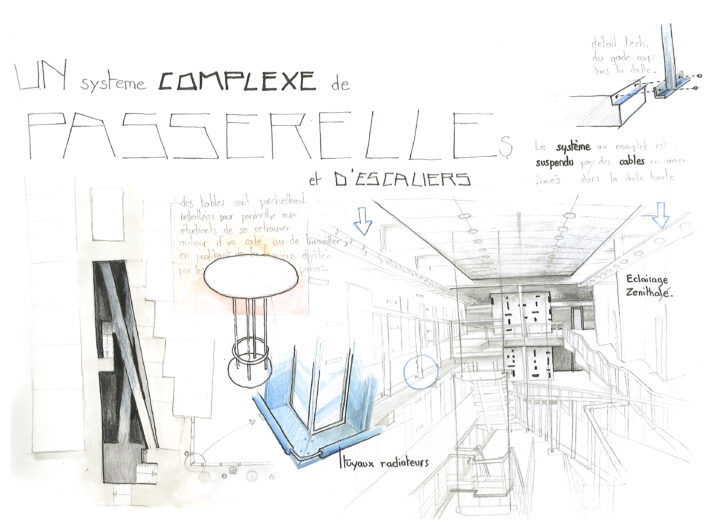 UN système COMPLEXE de
PASSERELLEs
et D'ESCALIERS
détail tech.
du garde corps
dans la dalle.
Le système au complet est
suspendu par des cables en acier
fixés dans la dalle haute
des tables sont ponctuellement
installées pour permettre aux
étudiants de se retrouver
autour d'un café, ou de travailler
en profitant de la
par les
Eclairage
Zénithale.
tuyaux radiateurs